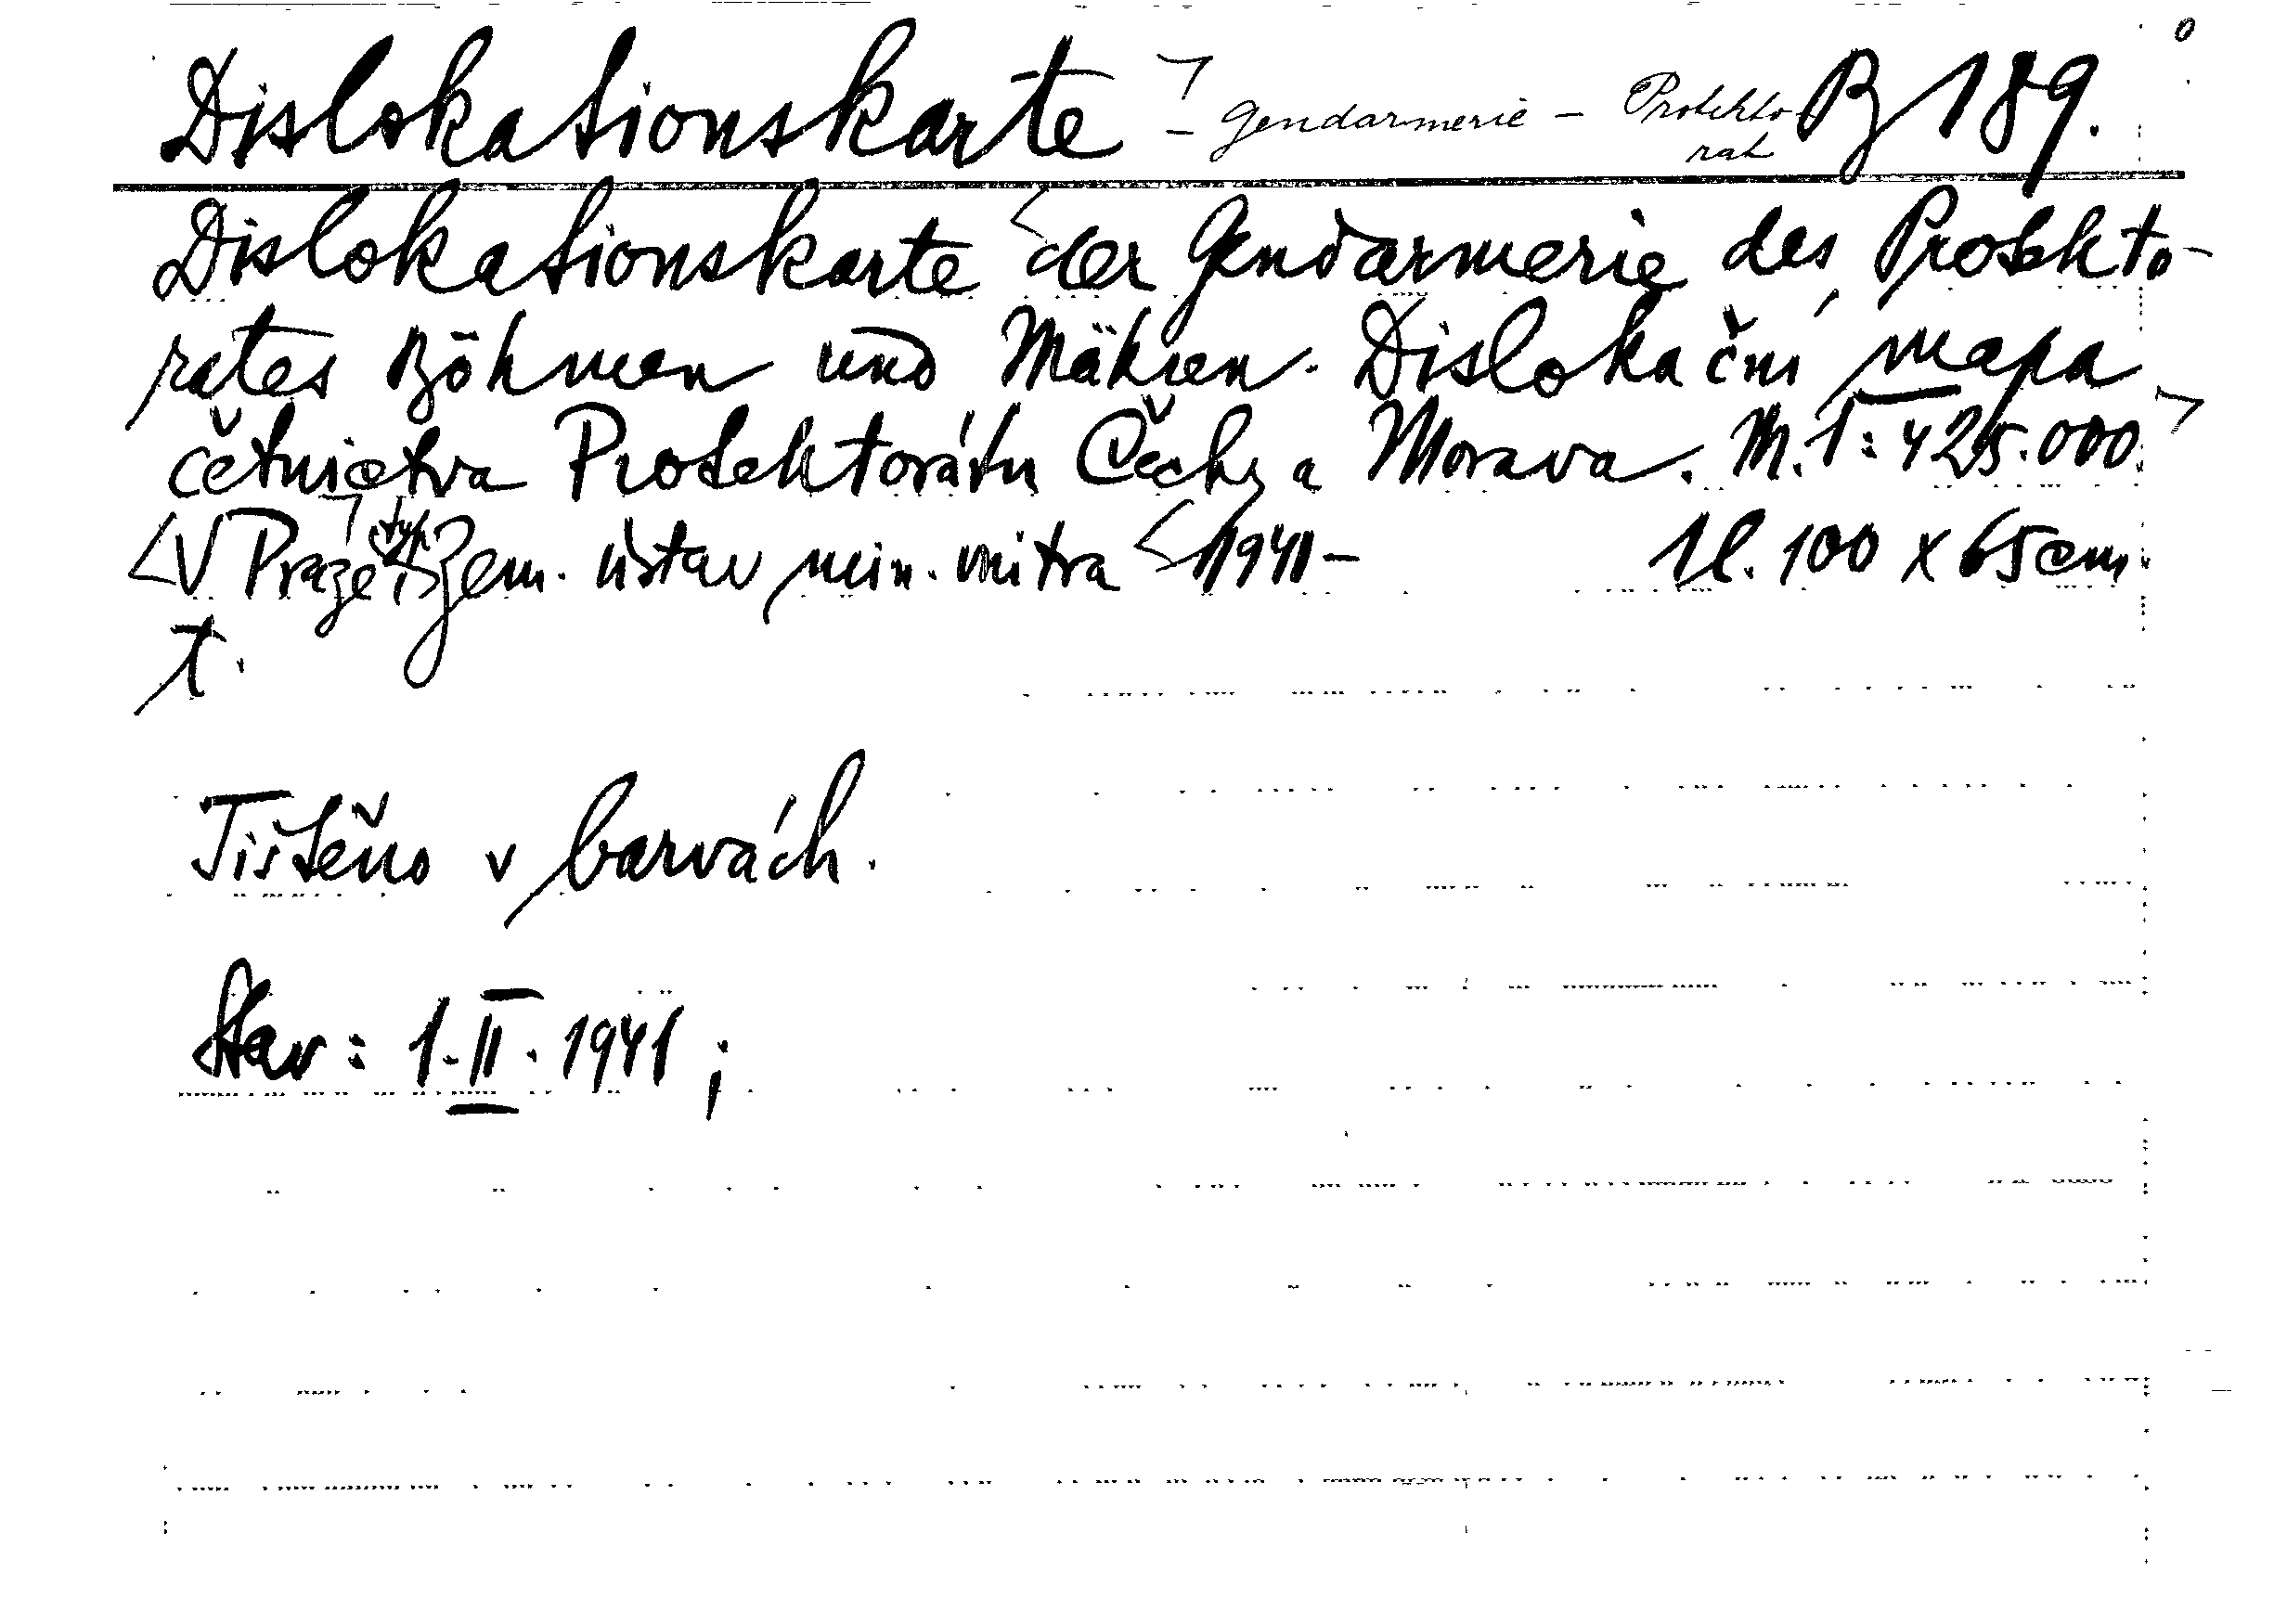 Dislokationskarte - Gendarmerie - Protekto- B 189.
rat
Dislokationskarte der Gendarmerie des Protekto-
rates Böhmen und Mähren. Dislokační mapa
četnictva Protektorátu Čechy a Morava. M. 1:425.000.
V Praze, Zem. ústav min. vnitra 1941 - 1 l. 100 x 65 cm.
Tištěno v barvách.
Stav: 1. II. 1941;